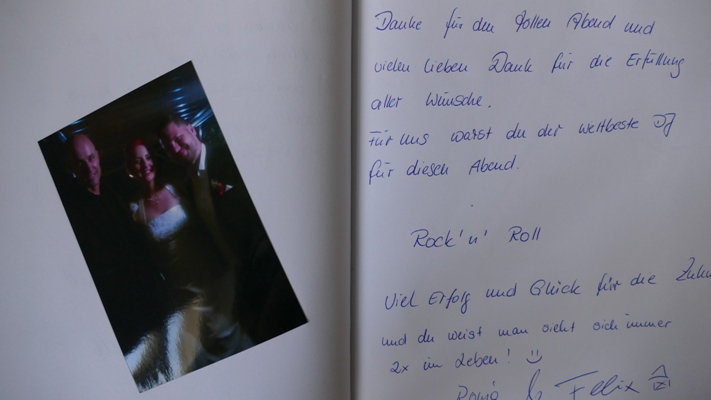 Danke für den tollen Abend und
vielen lieben Dank für die Erfüllung
aller Wünsche.
Für uns warst du der weltbeste DJ
für diesen Abend.
Rock'n' Roll
Viel Erfolg und Glück für die Zukun
und du weist man sieht sich immer
2x im Leben! :)
& Felix